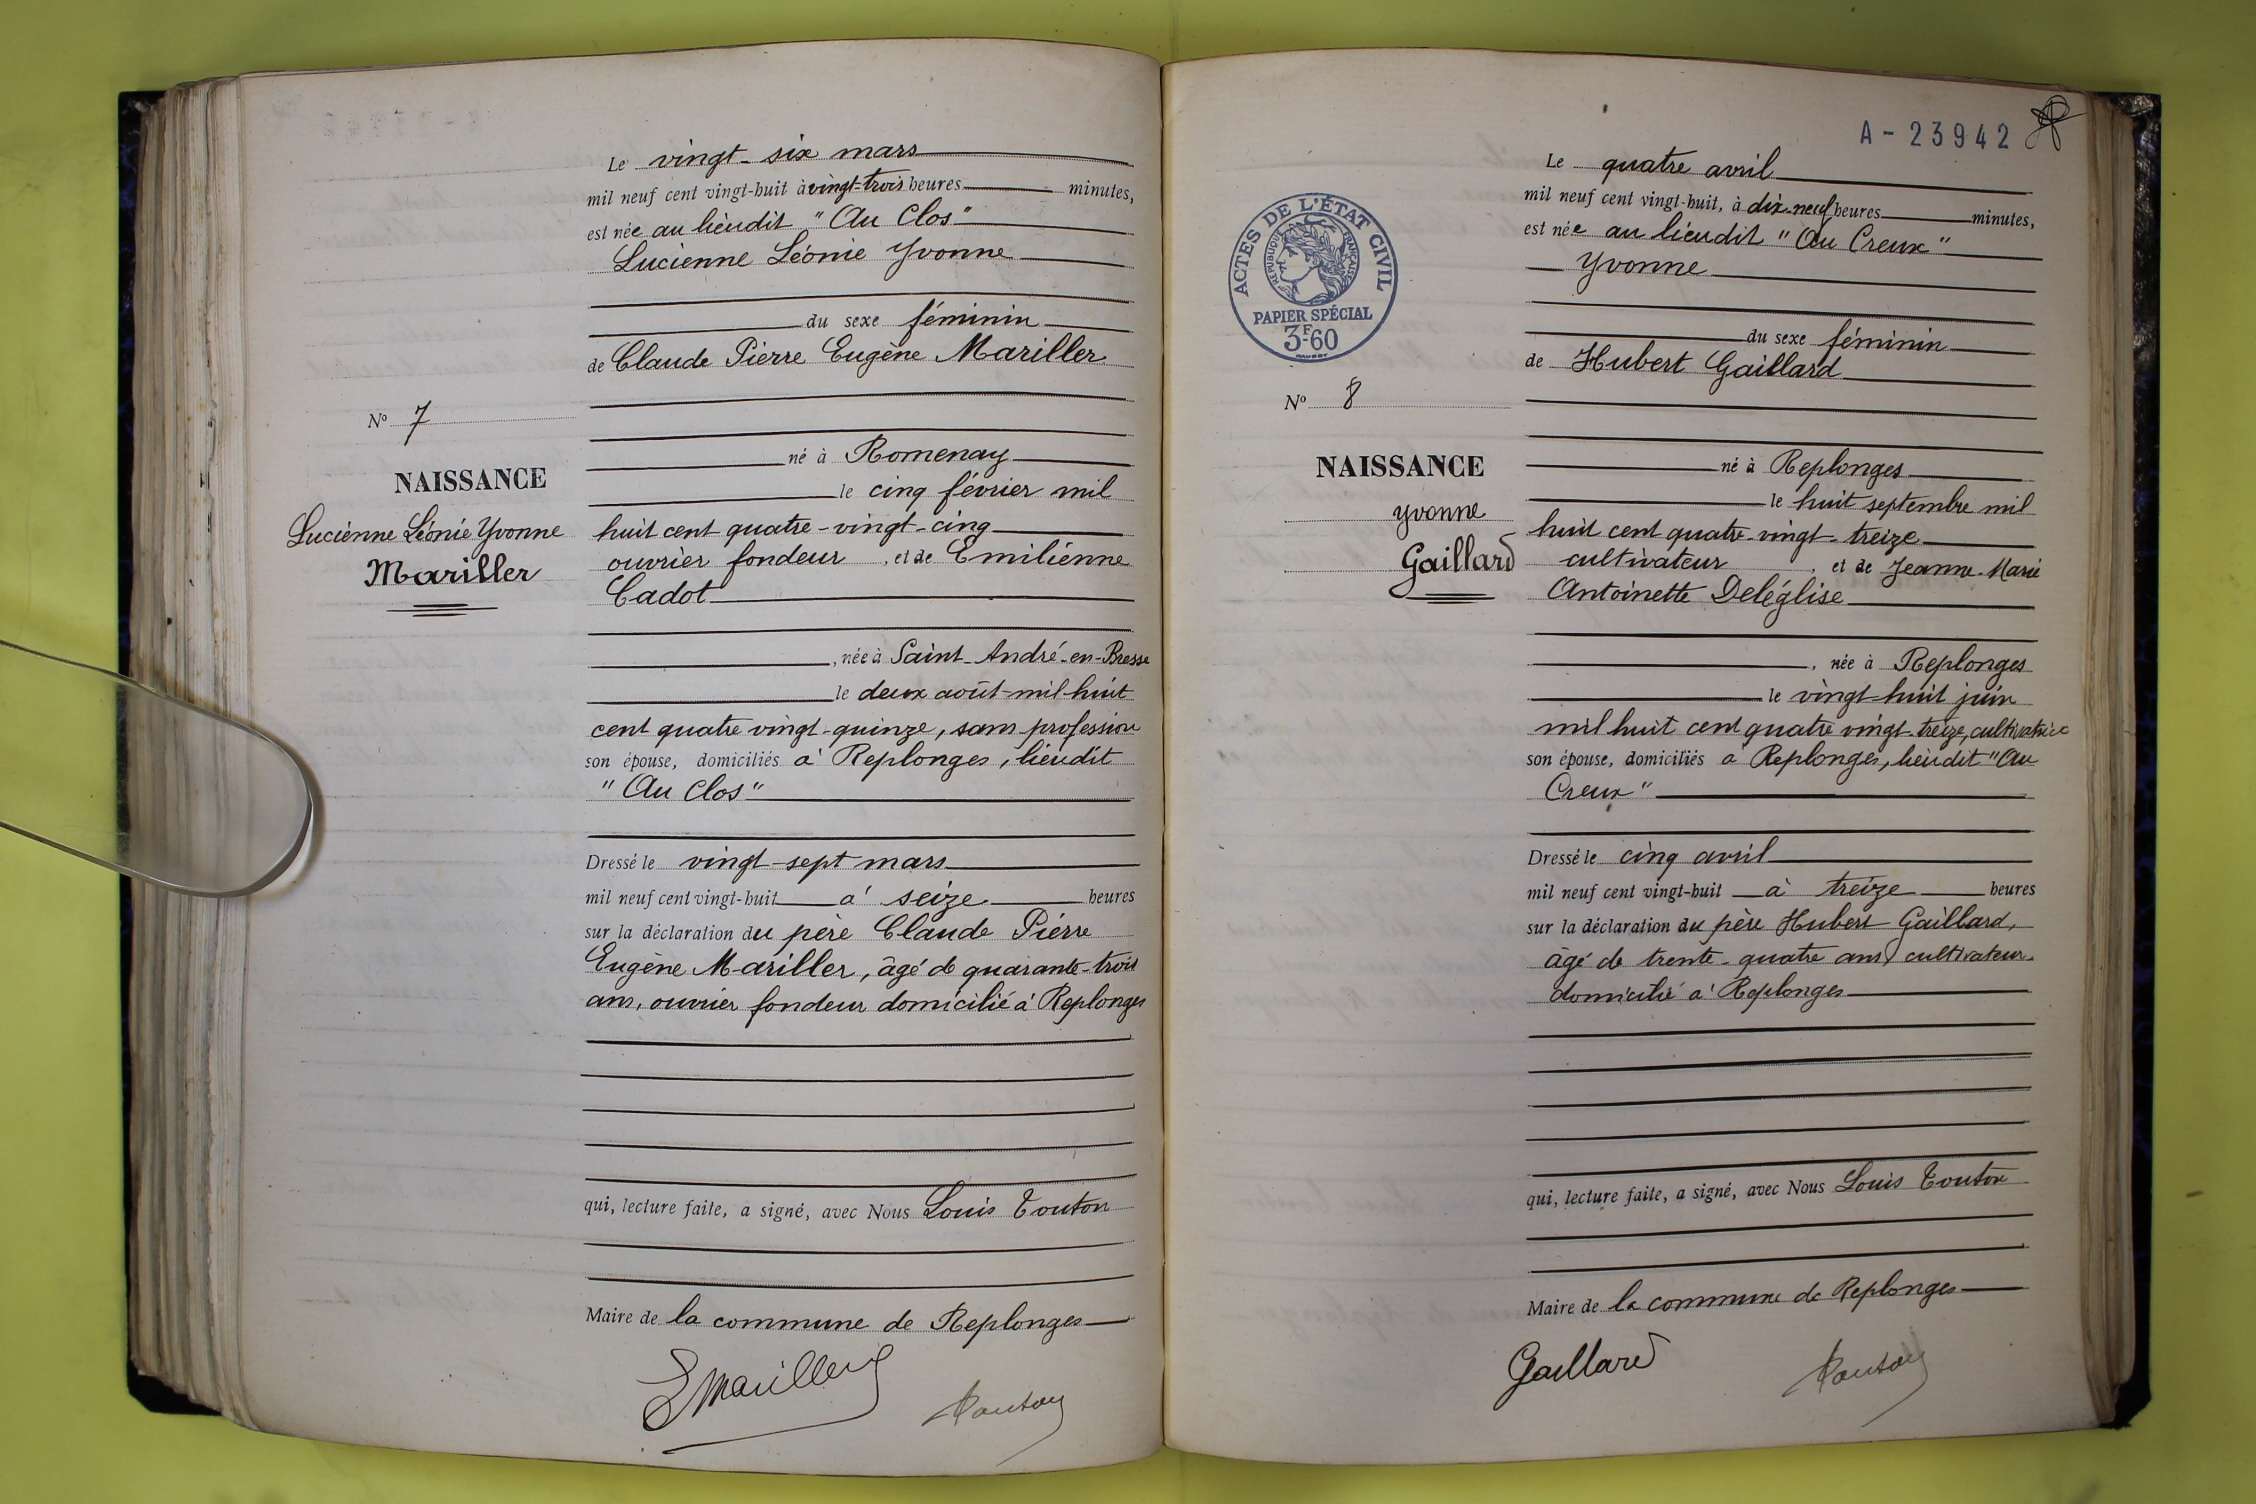 Le vingt-six mars
mil neuf cent vingt-huit à vingt-trois heures minutes,
est née au lieudit "Au Clos"
Lucienne Léonie Yvonne
du sexe féminin
de Claude Pierre Eugène Mariller
né à Romenay
le cinq février mil
huit cent quatre-vingt-cinq
ouvrier fondeur, et de Emilienne
Cadot
, née à Saint-André-en-Bresse
le deux août mil huit
cent quatre vingt-quinze, sans profession
son épouse, domiciliés à Replonges, lieudit
"Au Clos"
Dressé le vingt-sept mars
mil neuf cent vingt-huit à seize heures
sur la déclaration du père Claude Pierre
Eugène Mariller, âgé de quarante-trois
ans, ouvrier fondeur domicilié à Replonges
qui, lecture faite, a signé, avec Nous Louis Touton
Maire de la commune de Replonges
EMariller
Touton
N° 7
NAISSANCE
Lucienne Léonie Yvonne
Mariller
A-23942
Le quatre avril
mil neuf cent vingt-huit, à dix-neuf heures minutes,
est née au lieudit "Au Creux"
Yvonne
du sexe féminin
de Hubert Gaillard
né à Replonges
le huit septembre mil
huit cent quatre-vingt-treize
cultivateur, et de Jeanne-Marie
Antoinette Deléglise
, née à Replonges
le vingt-huit juin
mil huit cent quatre vingt-treize, cultivatrice
son épouse, domiciliés à Replonges, lieudit "Au
Creux"
Dressé le cinq avril
mil neuf cent vingt-huit à treize heures
sur la déclaration du père Hubert Gaillard,
âgé de trente-quatre ans, cultivateur
domicilié à Replonges
qui, lecture faite, a signé, avec Nous Louis Touton
Maire de la commune de Replonges
Gaillard
Touton
ACTES DE L'ÉTAT CIVIL
RÉPUBLIQUE FRANÇAISE
PAPIER SPÉCIAL
3F60
N° 8
NAISSANCE
Yvonne
Gaillard